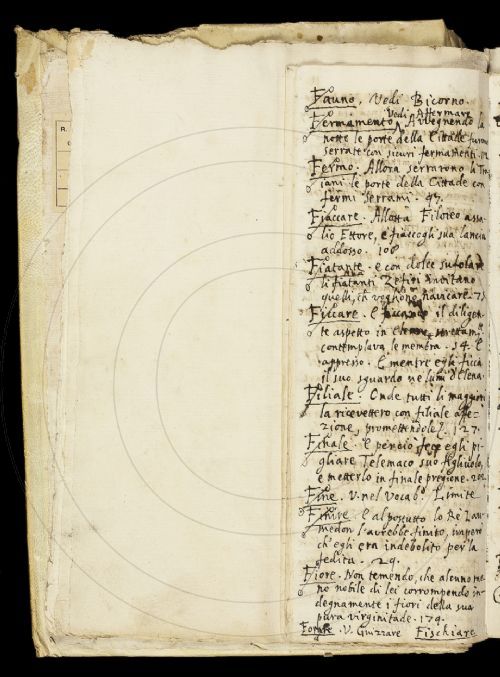 Fauno. Vedi Bicorno.
Vedi Affermare
Fermamento. Avvegnendo la
notte le porte della Cittade furono
serrate con sicuri fermamenti.
Fermo. Allora serrarono li Tro
iani le porte della Cittade con
fermi serrami. 97.
Fiaccare. Allotta Filoreo assa
lio Ettore, e fiaccogli sua lancia
addosso. 108
Fiatante. e con dolce sufolare
li fiatanti Zefiri invitano
quelli, ch vogliono navicare. 73
Ficcare. E ficcando il diligen
te aspetto in strettam.
contemplava le membra. 54. E
appresso. E mentre egli ficca
il suo sguardo ne lumi d'Elena.
Filiale. Onde tutti li maggiori
la ricevettero con filiale affe-
zione, promettendole 127.
Finale. e perciò fece egli pi-
gliare Telemaco suo figliuolo,
e metterlo in finale pregione. 202
Fine. V. nel Vocab.o Limite
Finire. e al postutto lo Re Lau-
medon l'avrebbe finito, impero
ch'egli era indebolito per la
fedita. 29.
Fiore. Non temendo, che alcuno me
no nobile di lei corrompendo in-
degnamente i fiori della sua
pura virginitade. 179.
V. Guizzare Fischiare